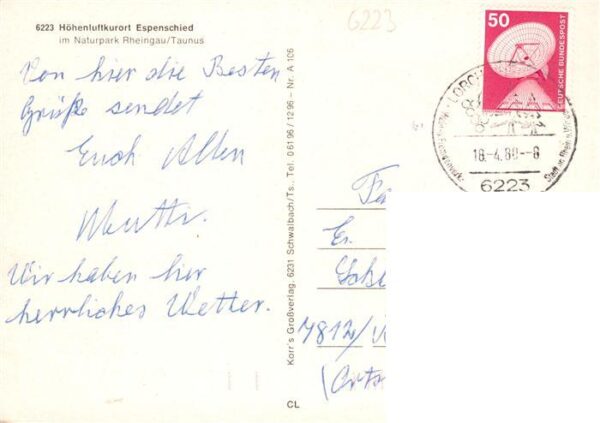 6223 Höhenluftkurort Espenschied
im Naturpark Rheingau/Taunus
6223
Von hier die Besten
Grüße sendet
Euch Allen
Mutti.
Wir haben hier
herrliches Wetter.
Korr's Großverlag. 6231 Schwalbach/Ts., Tel. 06196/1296 - Nr. A 106
CL
50
DEUTSCHE BUNDESPOST
LORCH
18.-4.80.--8
6223
7812/